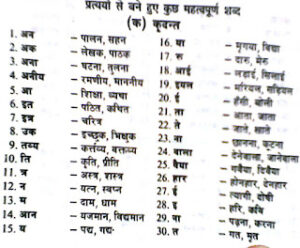 प्रत्ययों से बने हुए कुछ महत्वपूर्ण शब्द
(क) कृदन्त
1. अन – पालन, सहन
2. अक – लेखक, पाठक
3. अना – घटना, तुलना
4. अनीय – रमणीय, माननीय
5. आ – शिक्षा, व्यथा
6. इत – पठित, कथित
7. इत्र – चरित्र
8. उक – इच्छुक, भिक्षुक
9. तव्य – कर्त्तव्य, वक्तव्य
10. ति – कृति, प्रीति
11. त्र – अस्त्र, शास्त्र
12. न – यत्न, स्वप्न
13. म – दाम, धाम
14. आन – यजमान, विद्यमान
15. य – पद्य, गद्य
16. या – मृगया, विद्या
17. रु – दारु, मेरु
18. आई – लड़ाई, सिलाई
19. इयल – मरियल, सड़ियल
20. ई – हँसी, बोली
21. ता – आता, जाता
22. ते – जाते, खाते
23. ना – छानना, कूटना
24. वाला – देनेवाला, आनेवाला
25. वैया – गवैया, खिवैया
26. हार – होनहार, देनहार
27. ई – त्यागी, दोषी
28. इ – हरि, कवि
29. ना – पढ़ना, करना
30. त – गत, मृत